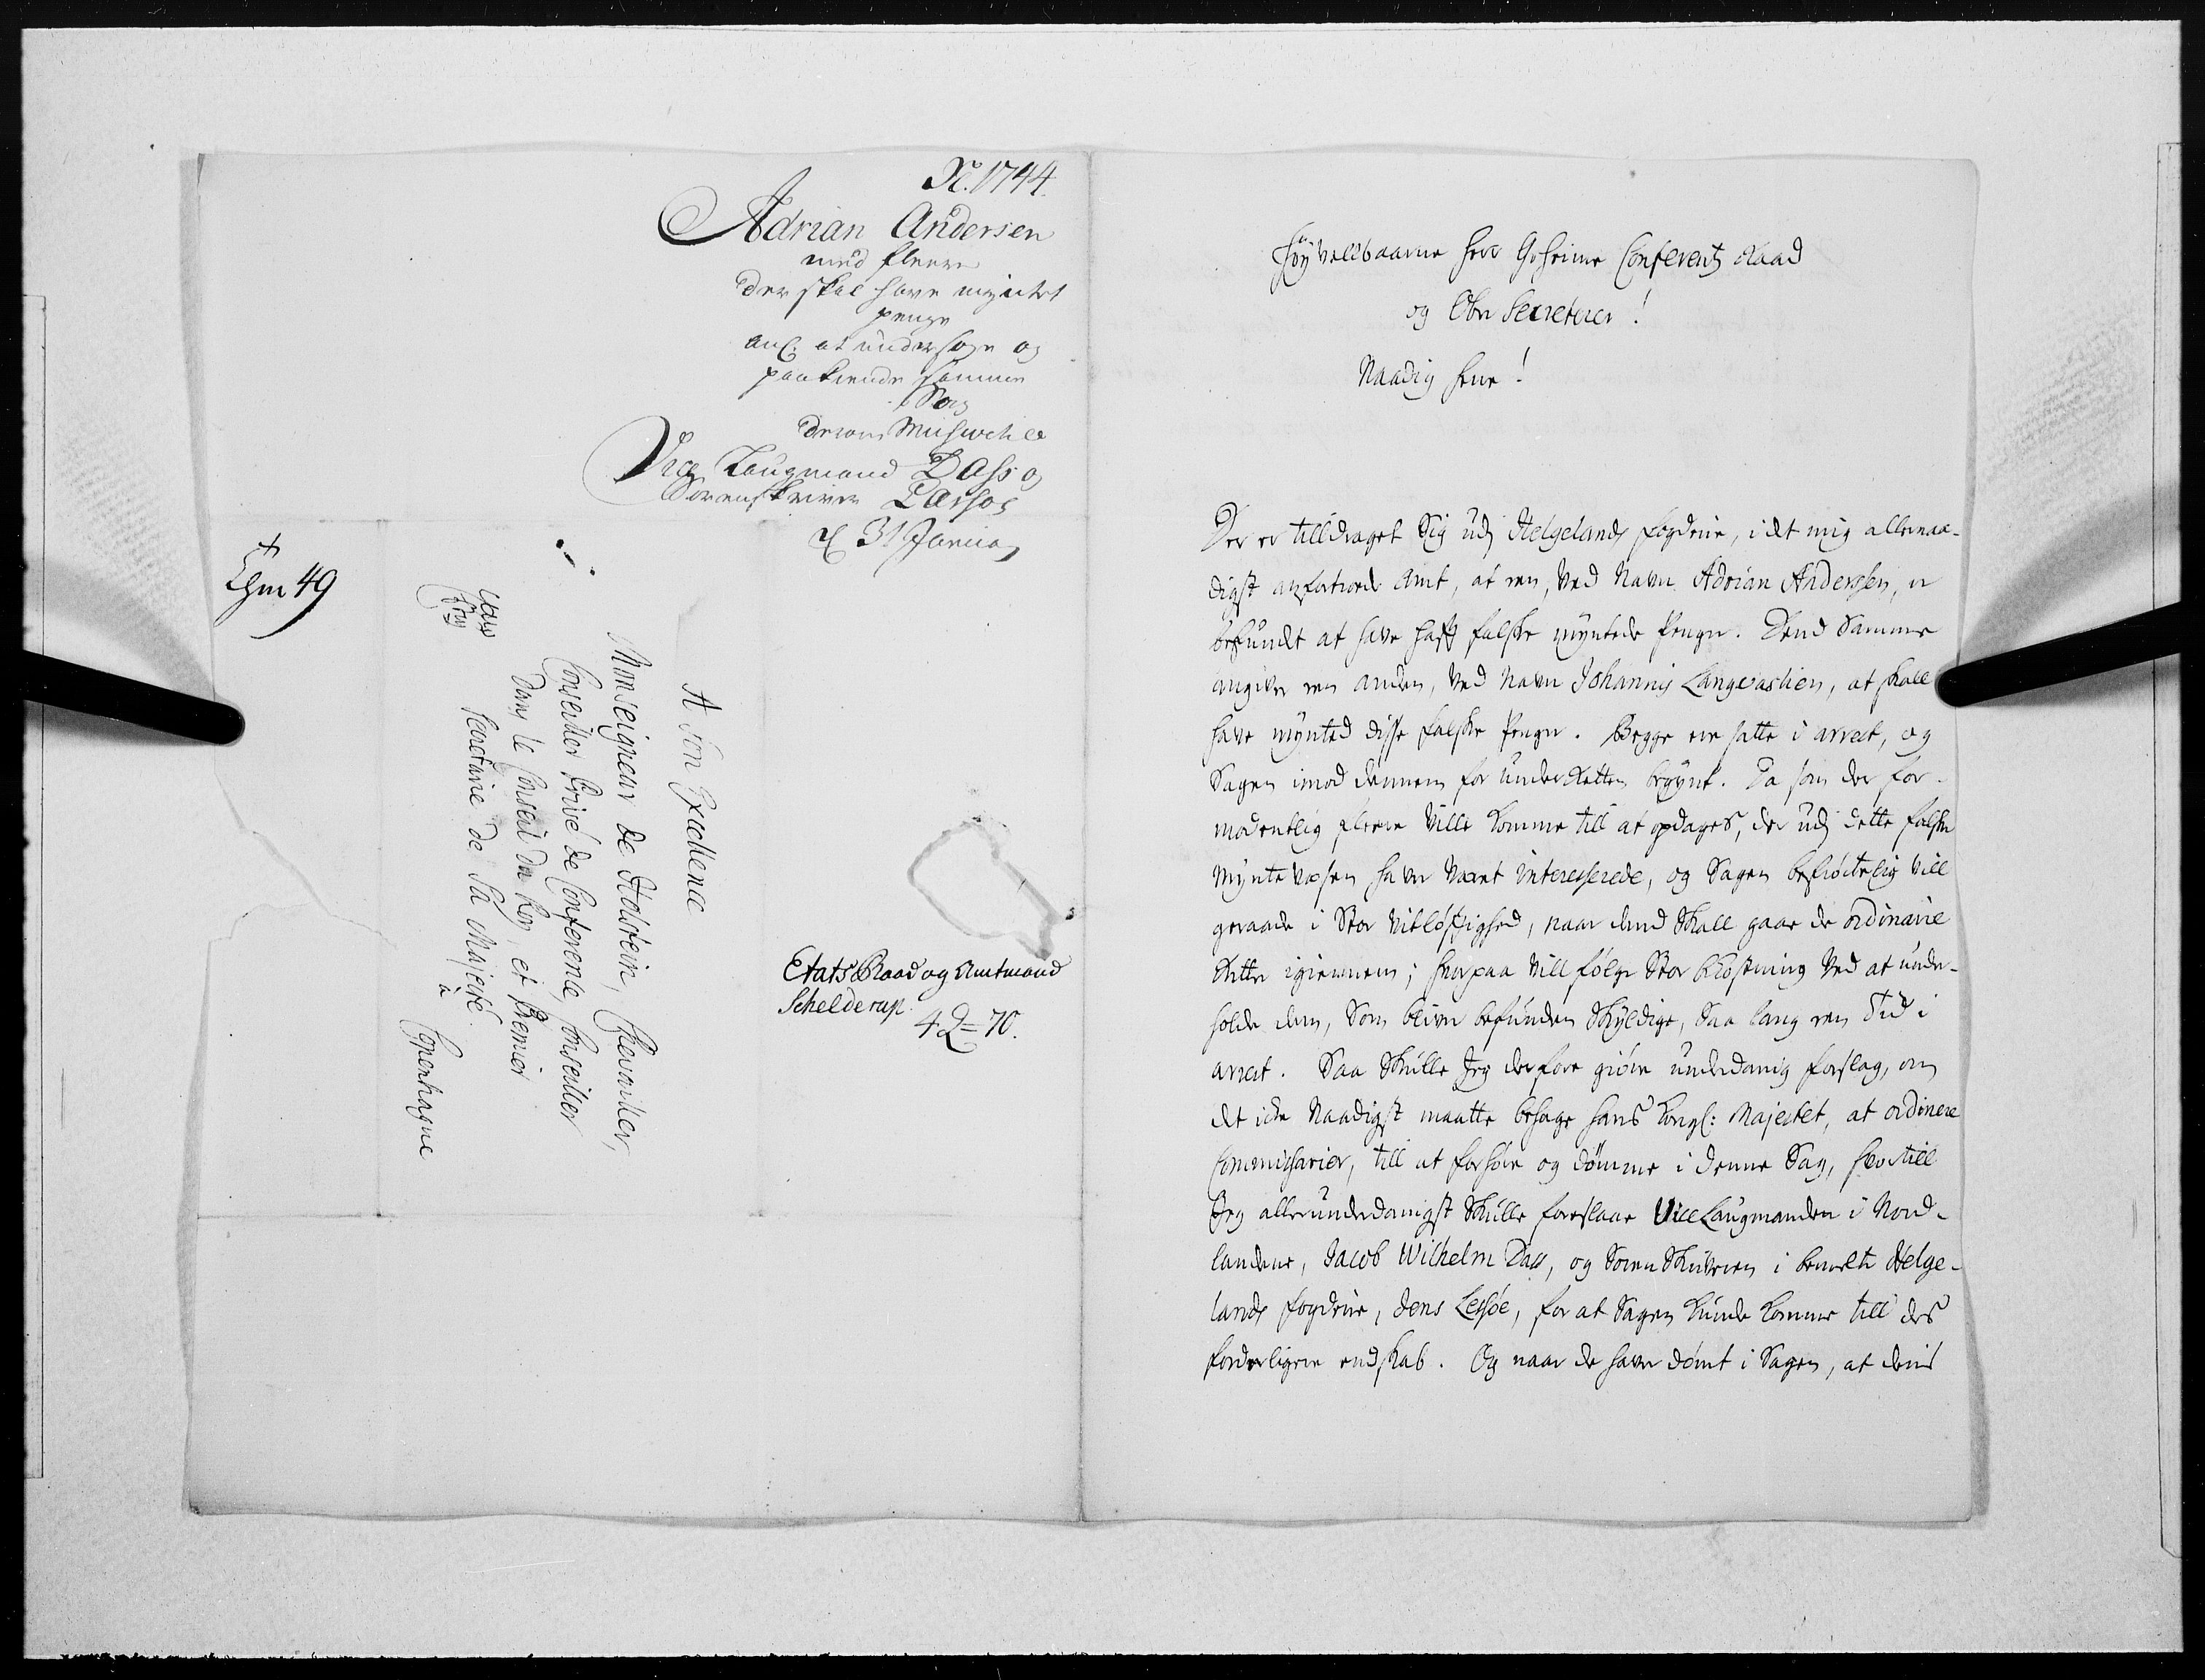 No. 1744.
Adrian Andersen
med fleere
der skal have myntet
penge
anl: at undersøge og
paakiende samme
Sag
Vice Laugmand Dass og
Sorenskriver
d 31 Janua
Etats Raad og Amtmand
Schelderup.
49
A Son Excellence
Monseigneur de Holstein, Chevalier,
Conseiller Privé de Conference, Conseiller
Dans le Conseil du Roy, et Premier
Secretaire de Sa Majesté.
à
Copenhague
Høyvelbaarne Herr Geheime Conferentz Raad
og Ober Secreterer!
Naadig Herre!
Der er tilldraget Sig udj Helgelands fogderie, i det mig allernaa-
digst anfortroede Amt, at een, Ved Navn Adrian Anderssen, er
befundet at have hafft falske myntede Penge. Dend Samme
angiver een anden, Ved Navn Johannis Langvashien, at skall
have mynted disse falske Penge. Begge ere satte i arrest, og
Sagen imod dennem for underRetten begynt. Da som der for-
modentlig fleere Ville komme till at opdages, der udj dette falske
Myntevæsen haver Været interesserede, og Sagen befrӧctelig Vill
geraade i Stor Vitløftighed, naar dend Skall gaae de ordinarie
Retter igiennem; hvorpaa Vill følge Stor bekostning Ved at under-
holde dem, Som bliver befunden Skyldige, Saa lang een Tid i
arrest. Saa Skulle Jeg derfore giøre underdanig forslag, om
det icke Naadigst maatte behage hans Kongl: Majestet, at ordinere
Commissarier, till at forhøre og dømme i denne Sag, hvortill
Jeg allerunderdanigst Skulle foreslaae Vice Laugmanden i Nord-
landene, Jacob Wilhelm Dass, og SorenSkriveren i bemelte Helge-
lands fogderie, Jens Lessøe, for at Sagen kunde komme till des
forderligere endskab. Og naar de haver dømt i Sagen, at deris